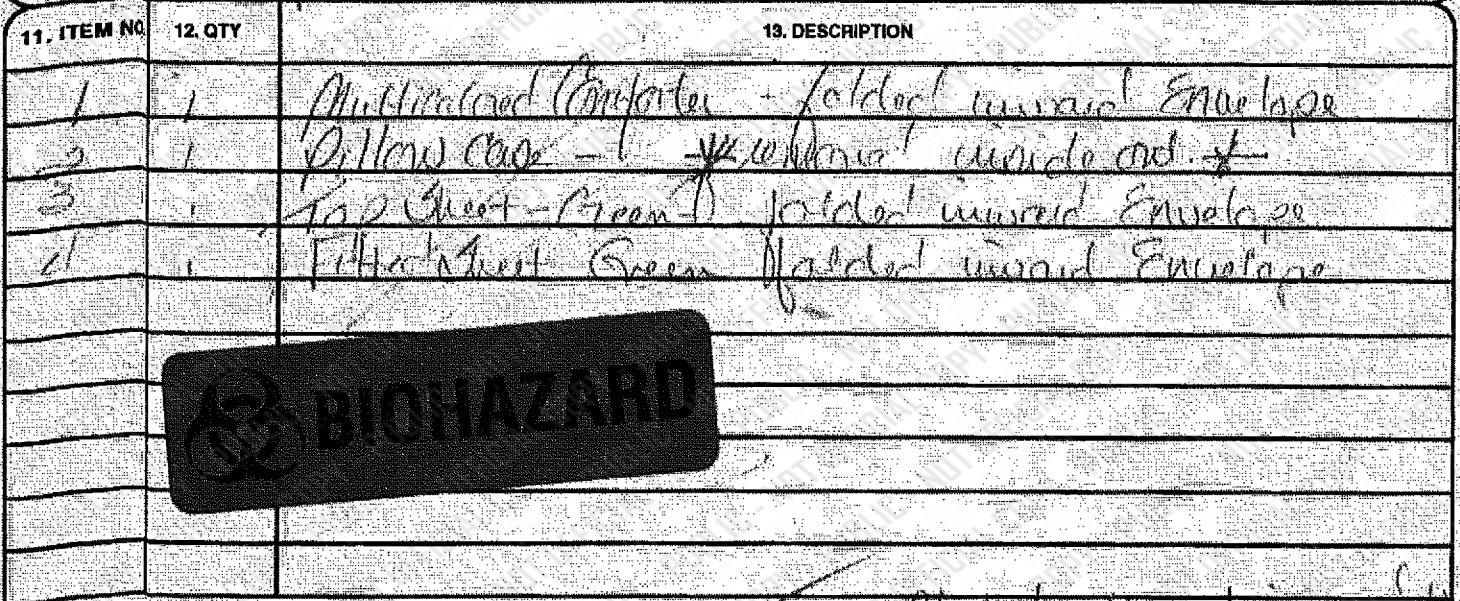 11. ITEM NO 12. QTY 13. DESCRIPTION
1 1 Multicolored Comforter - folded inward Envelope
2 1 Pillow case - 1 inside out
3 1 Top Sheet - Green folded inward Envelope
4 1 Fitted Sheet Green folded inward Envelope
BIOHAZARD